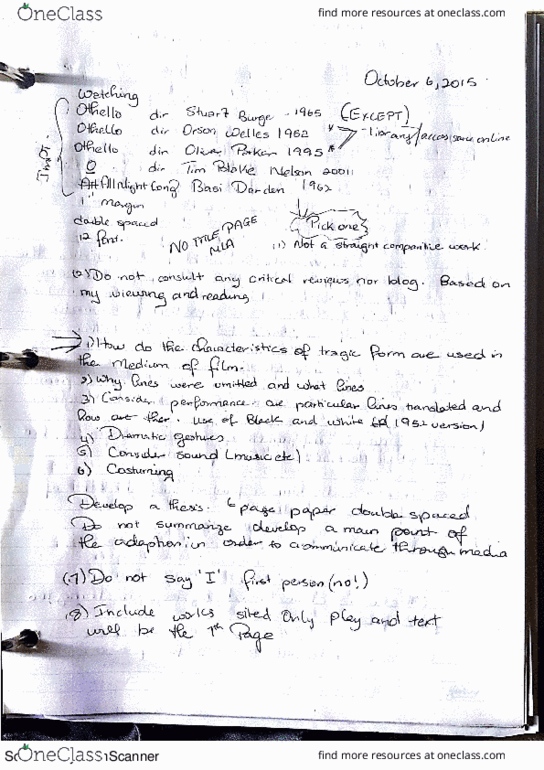 OneClass find more resources at oneclass.com
October 6, 2015
Watching
Othello dir Stuart Burge - 1965 (EXCEPT)
Othello dir Orson Welles 1952 library/access online
Othello dir Oliver Parker 1995
O dir Tim Blake Nelson 2001
All Night Long Basi Darden 1962
1" margin
double spaced
12 font.
NO TITLE PAGE
MLA
Pick one
(1) Not a straight work
(2) Do not consult any critical reviews nor blog. Based on
my viewing and reading
1) How do the characteristics of tragic form are used in
the medium of film.
2) Why lines were omitted and what lines
3) Consider performance are particular lines translated and
how are ther. use of Black and white 1952 version)
4) Dramatic gestures
5) Consider sound (music etc)
6) Costuming
Develop a thesis. 6 page paper double spaced
Do not summarize develop a main point of
the adaption in order to communicate through media
(7) Do not say 'I' first person (no!)
(8) Include works sited Only play and text
will be the 7th Page
OneClass Scanner find more resources at oneclass.com